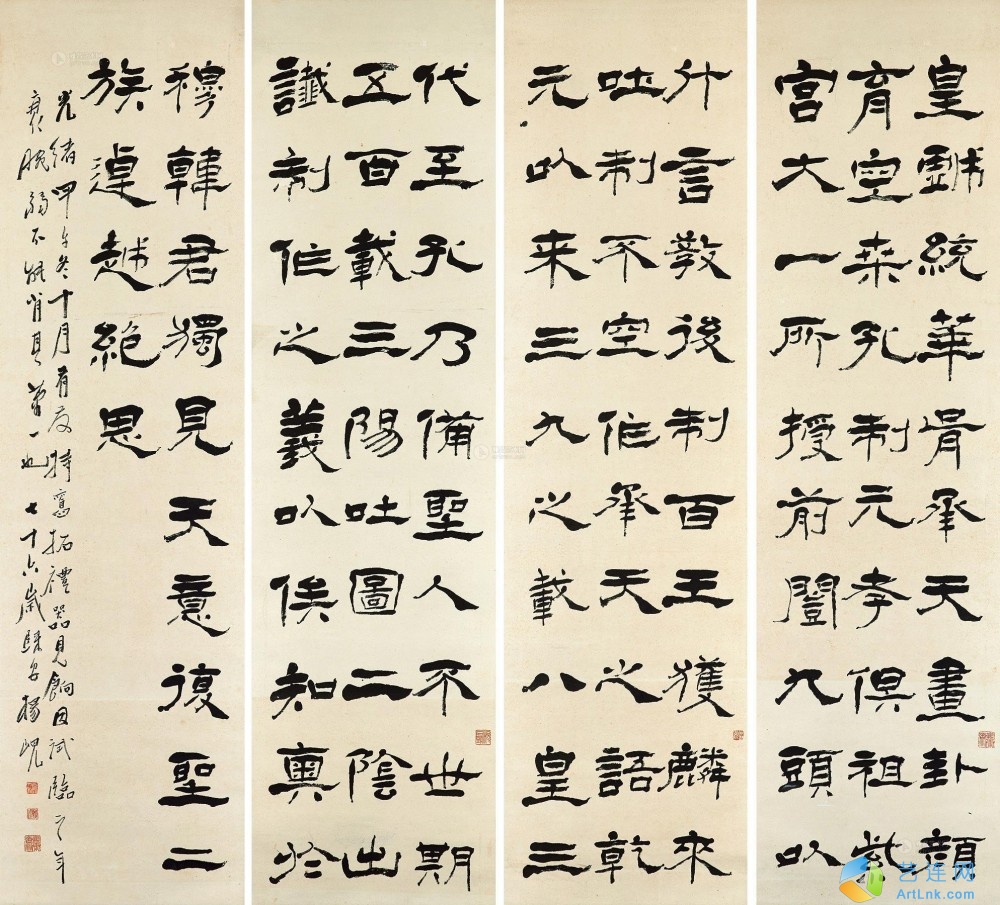 皇戲統華胥承天畫卦顏
育空桑孔制元孝俱祖紫
宮大一所授前闓九頭以
什言教後制百王獲麟來
吐制不空作承天之語乾
元以来三九之載八皇三
代至孔乃備聖人不世期
五百載三陽吐圖二陰出
讖制作之義以俟知奧於
穆韓君獨見天意復聖二
族逴越絕思
光緒甲午冬十月有友持舊拓禮器見餉因試臨之年
衰腕弱不能肖其萬一也七十六歲歸安楊峴
艺连网
ArtLnk.com